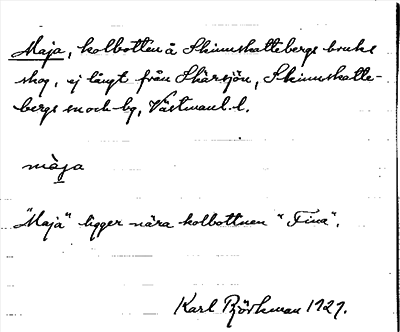 Maja, kolbotten å Skinnskattebergs bruks
skog, ej långt från Skärsjön, Skinnskatte-
bergs sn och bg, Västmanl. l.
màja
"Maja" ligger nära kolbottnen "Fina".
Karl Björkman 1929.